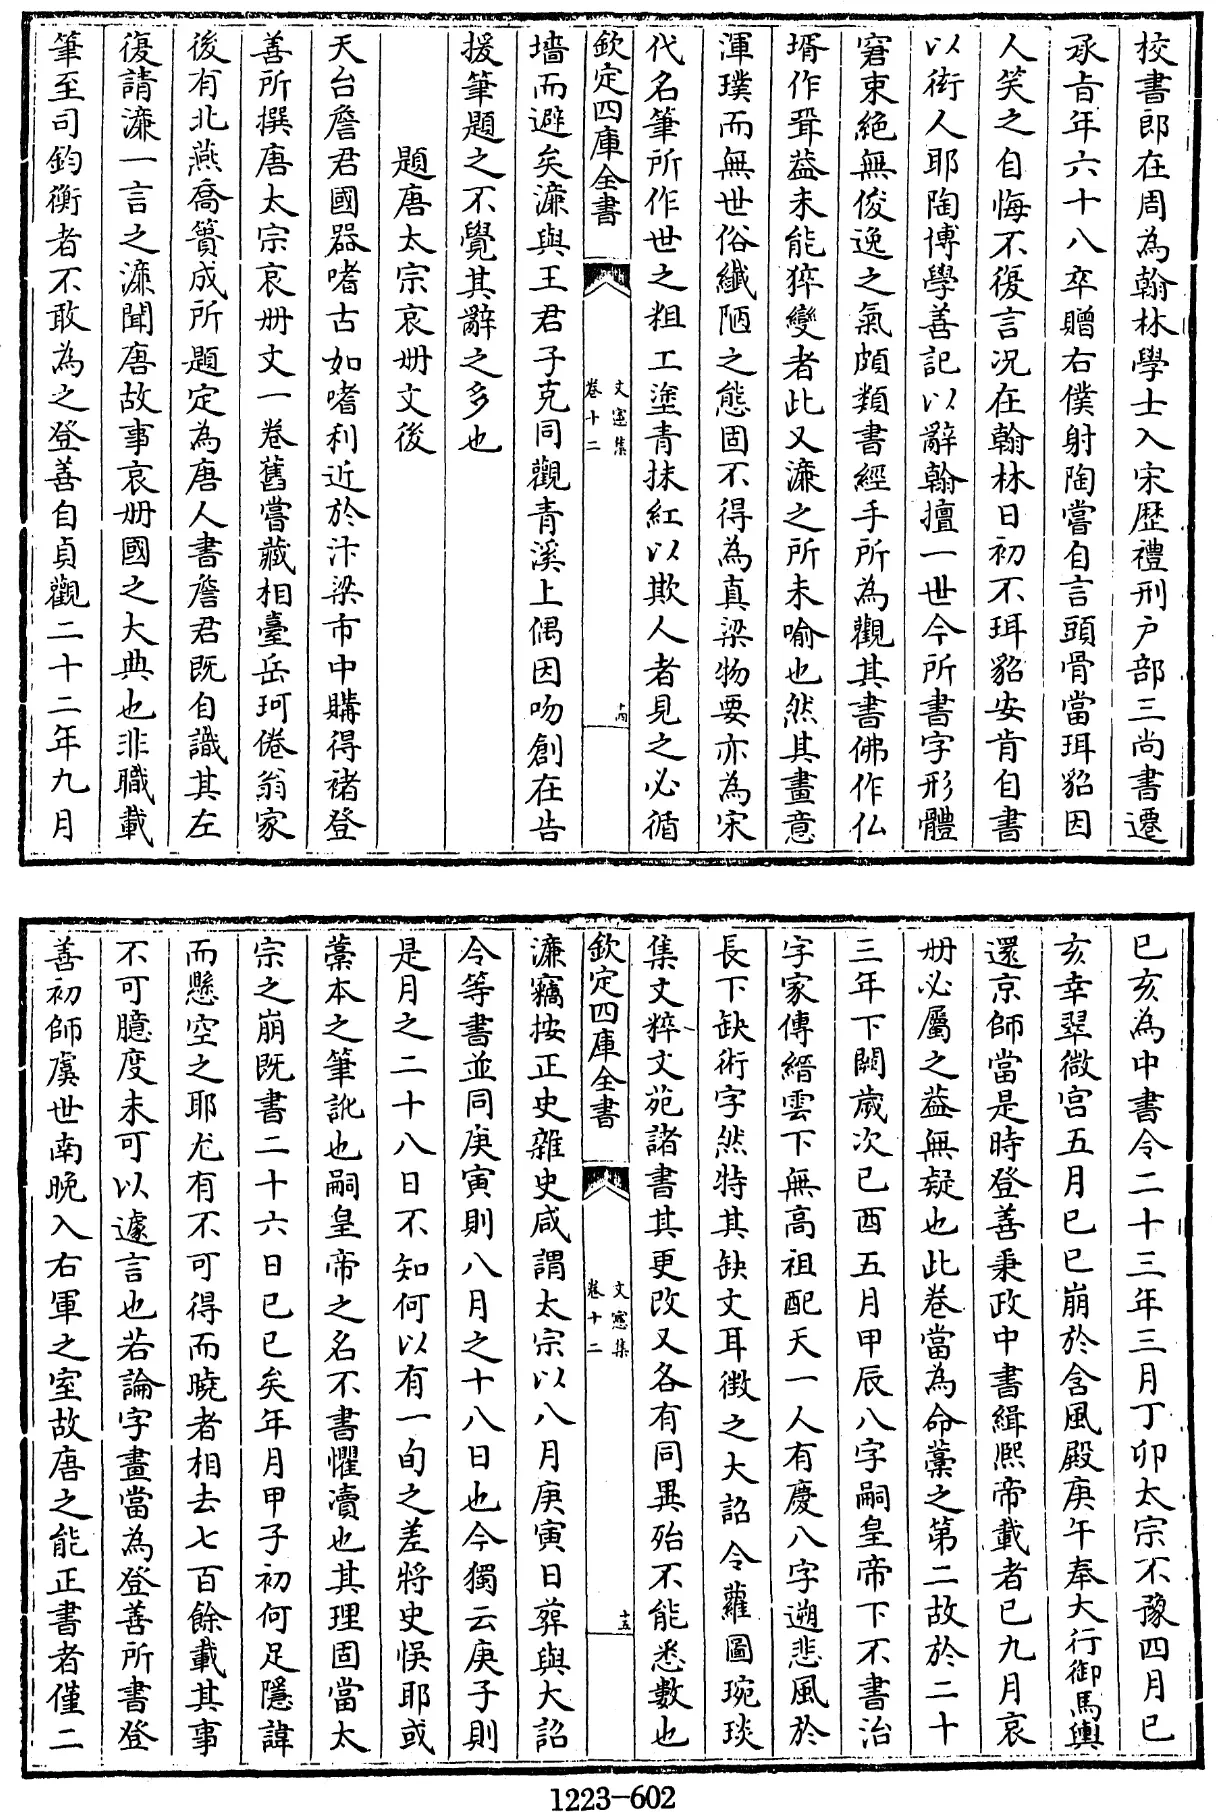 校書郎在周為翰林學士入宋歷禮刑户部三尚書遷
承㫖年六十八卒贈右僕射陶嘗自言頭骨當珥貂因
人笑之自悔不復言况在翰林日初不珥貂安肯自書
以衒人耶陶博學善記以辭翰擅一世今所書字形體
窘束絶無俊逸之氣頗類書經手所為觀其書佛作仏
壻作聓益未能猝變者此又濂之所未喻也然其畫意
渾璞而無世俗纎陋之態固不得為真梁物要亦為宋
代名筆所作世之粗工塗青抹紅以欺人者見之必循
欽定四庫全書
文憲集
卷十二
十四
墻而避矣濂與王君子克同觀青溪上偶因吻創在告
援筆題之不覺其辭之多也
題唐太宗哀冊文後
天台詹君國器嗜古如嗜利近於汴梁市中購得禇登
善所撰唐太宗哀冊文一卷舊嘗藏相臺岳珂倦翁家
後有北燕喬簣成所題定為唐人書詹君既自識其左
復請濂一言之濂聞唐故事哀冊國之大典也非職載
筆至司鈞衡者不敢為之登善自貞觀二十二年九月
己亥為中書令二十三年三月丁卯太宗不豫四月己
亥幸翠微宫五月己巳崩於含風殿庚午奉大行御馬輿
還京師當是時登善秉政中書緝熙帝載者已九月哀
冊必屬之益無疑也此卷當為命藁之第二故於二十
三年下闕歲次己酉五月甲辰八字嗣皇帝下不書治
字家傳縉雲下無高祖配天一人有慶八字遡悲風於
長下缺術字然特其缺文耳徴之大詔令蘿圖琬琰
集文粹文苑諸書其更改又各有同異殆不能悉數也
欽定四庫全書
文憲集
卷十二
十五
濂竊按正史雜史咸謂太宗以八月庚寅日葬與大詔
令等書並同庚寅則八月之十八日也今獨云庚子則
是月之二十八日不知何以有一旬之差將史悞耶或
藁本之筆訛也嗣皇帝之名不書懼瀆也其理固當太
宗之崩既書二十六日己巳矣年月甲子初何足隠諱
而懸空之耶尤有不可得而曉者相去七百餘載其事
不可臆度未可以遽言也若論字畫當為登善所書登
善初師虞世南晚入右軍之室故唐之能正書者僅二
1223-602